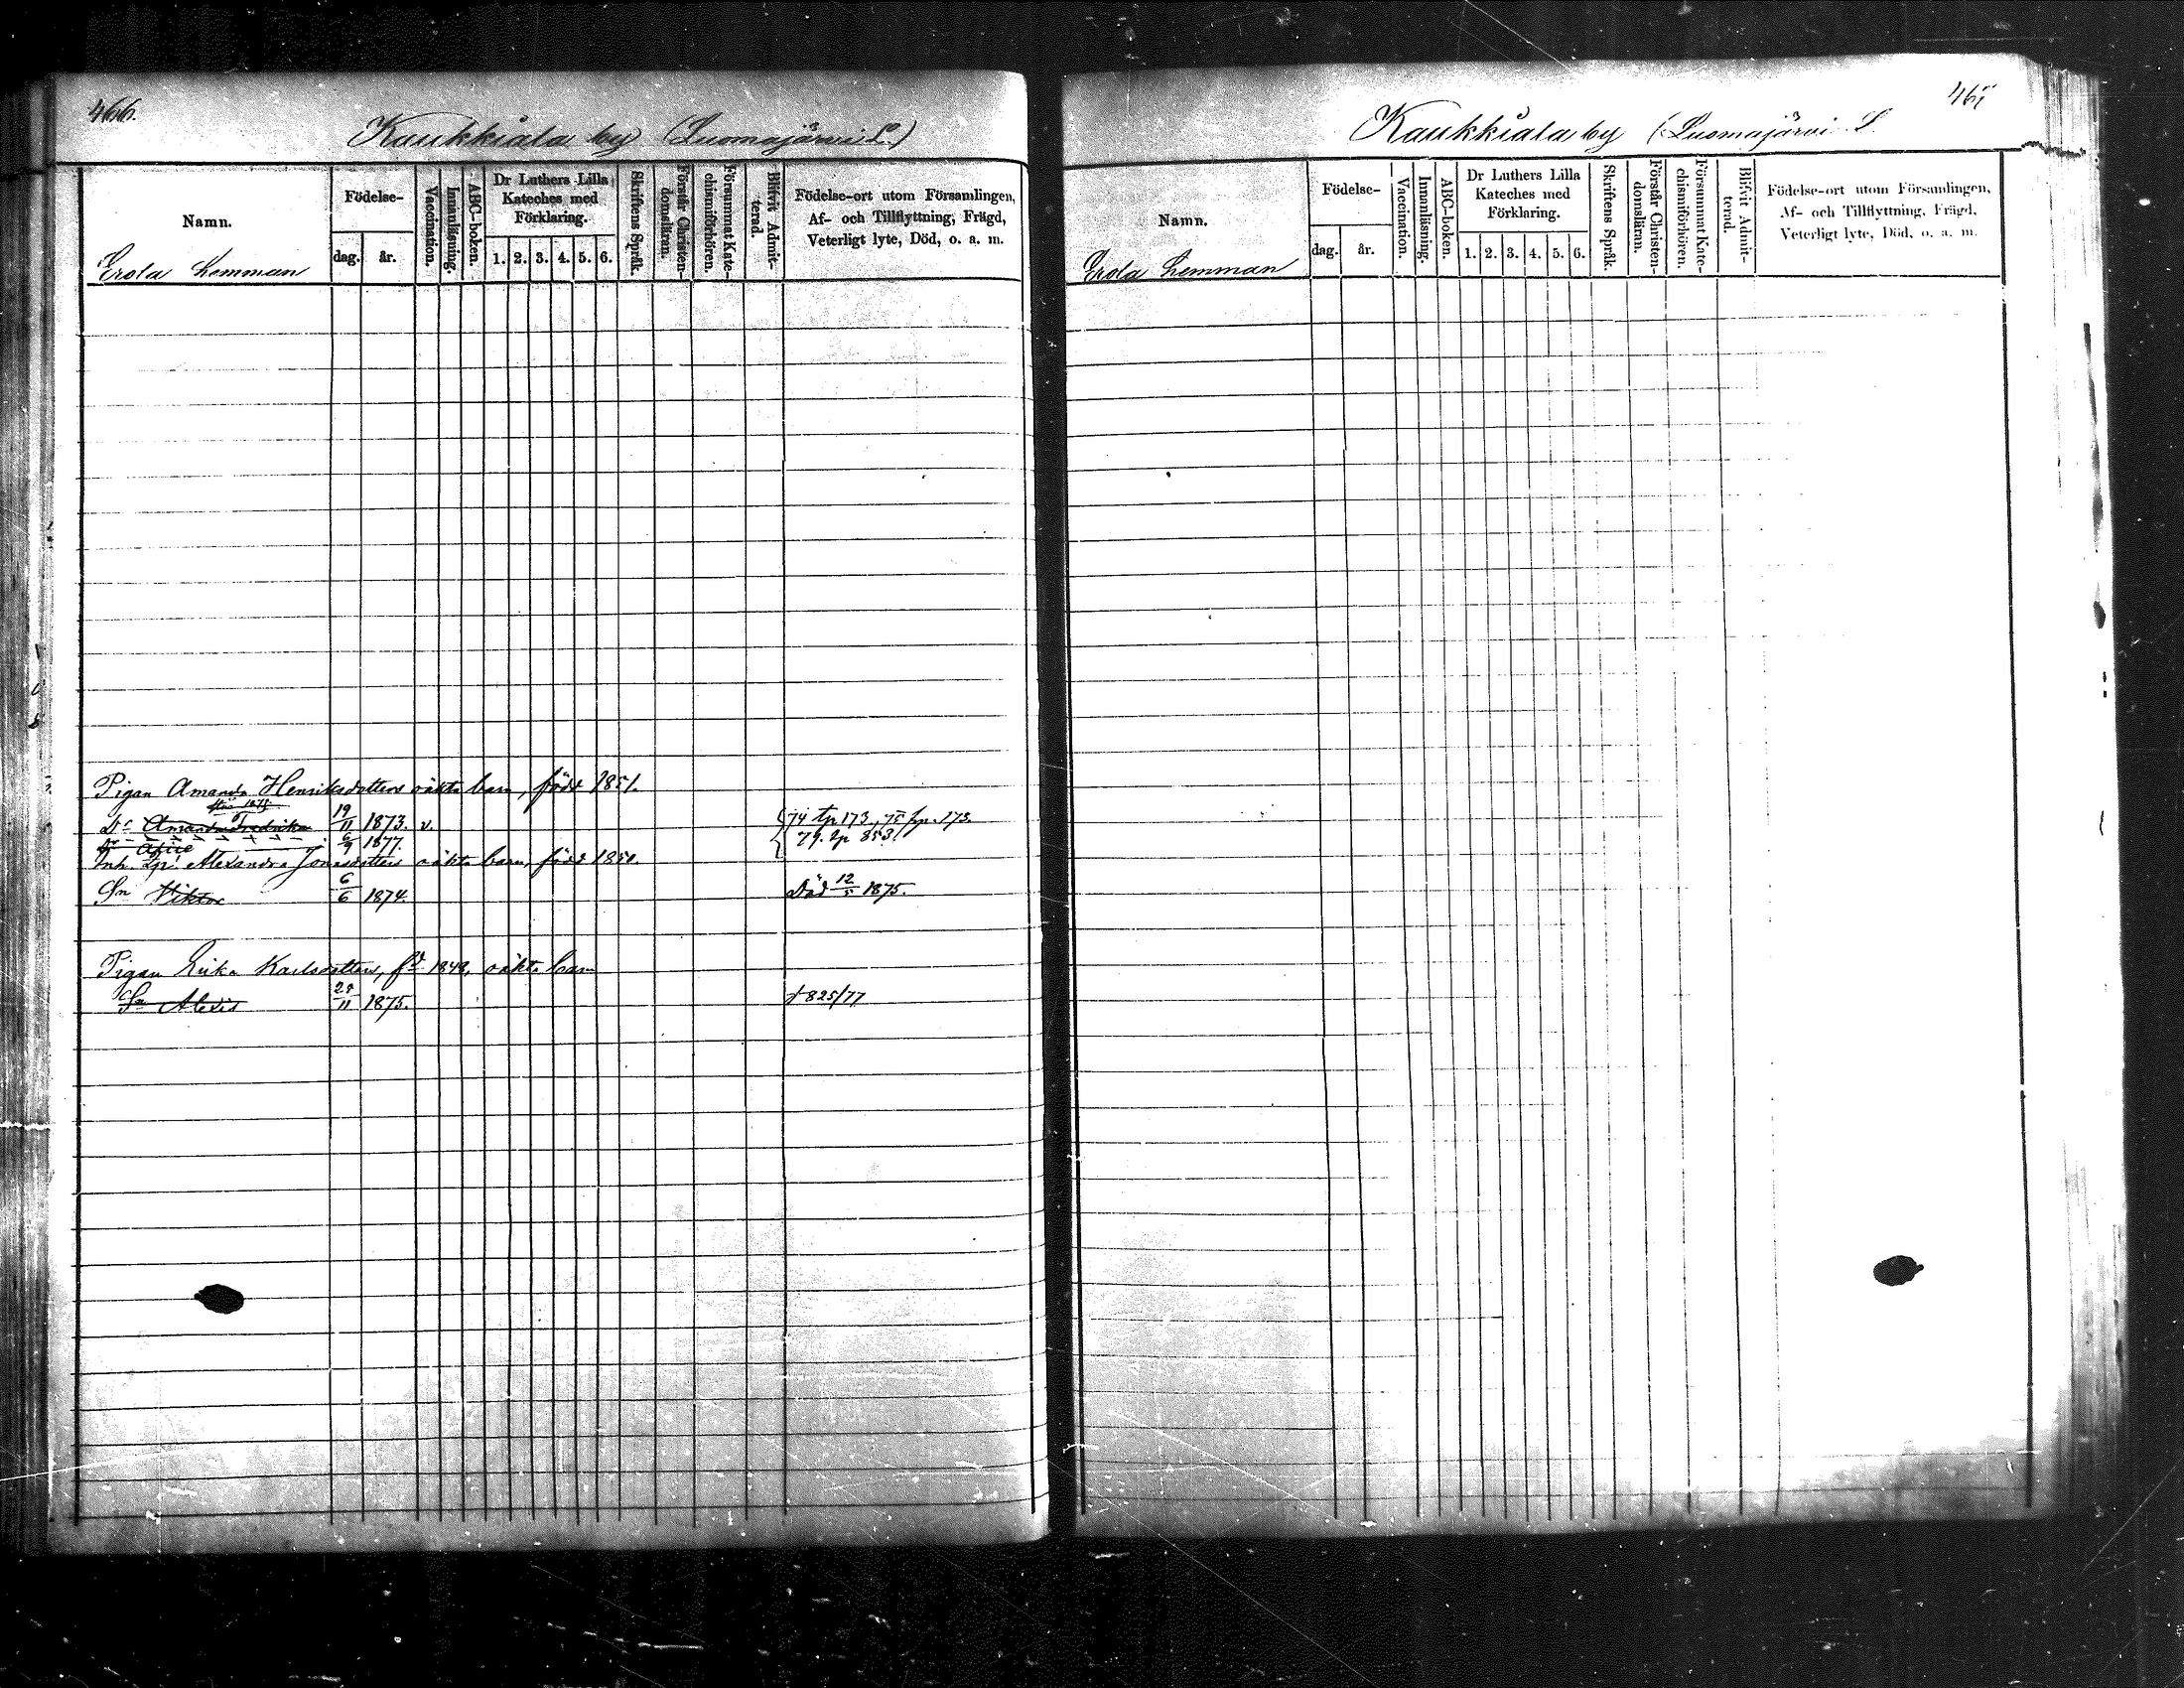 466.
Kaukkiala by (Luomajärvi L.)
Namn.
Födelse-
dag.
år.
Vaccination.
Innanläsning.
ABC-boken.
Dr Luthers Lilla Kateches med Förklaring.
1. 2. 3. 4. 5. 6.
Skriftens Språk.
Förstår Christen-domsläran.
Försummat Kate-chismiförhören.
Blifvit Admit-terad.
Födelse-ort utom Församlingen,
Af- och Tillflyttning, Frägd,
Veterligt lyte, Död, o. a. m.
Erola Lemman
Pigan Amanda Henriksdotters oäkta barn, född 1851.
Dr Amanda Fredrika 19/11 1873. v. 74 tp 173, 75 hp. 173.
1877. 79. tp 853.
Inh. Alexandra Jonasdotters oäkta barn, född 1851.
Sn Viktor 6/6 1874. Död 12/5 1875.
Pigan Erika Karlsdotters, fd 1848, oäkta barn
Sn Alexis 1875. + 825/77
Kaukkiala by (Luomajärvi L.
Namn.
Födelse-
dag.
år.
Vaccination.
Innanläsning.
ABC-boken.
Dr Luthers Lilla Kateches med Förklaring.
1. 2. 3. 4. 5. 6.
Skriftens Språk.
Förstår Christen-domsläran.
Försummat Kate-chismiförhören.
Blifvit Admit-terad.
Födelse-ort utom Församlingen,
Af- och Tillflyttning, Frägd,
Veterligt lyte, Död, o. a. m.
Erola Lemman